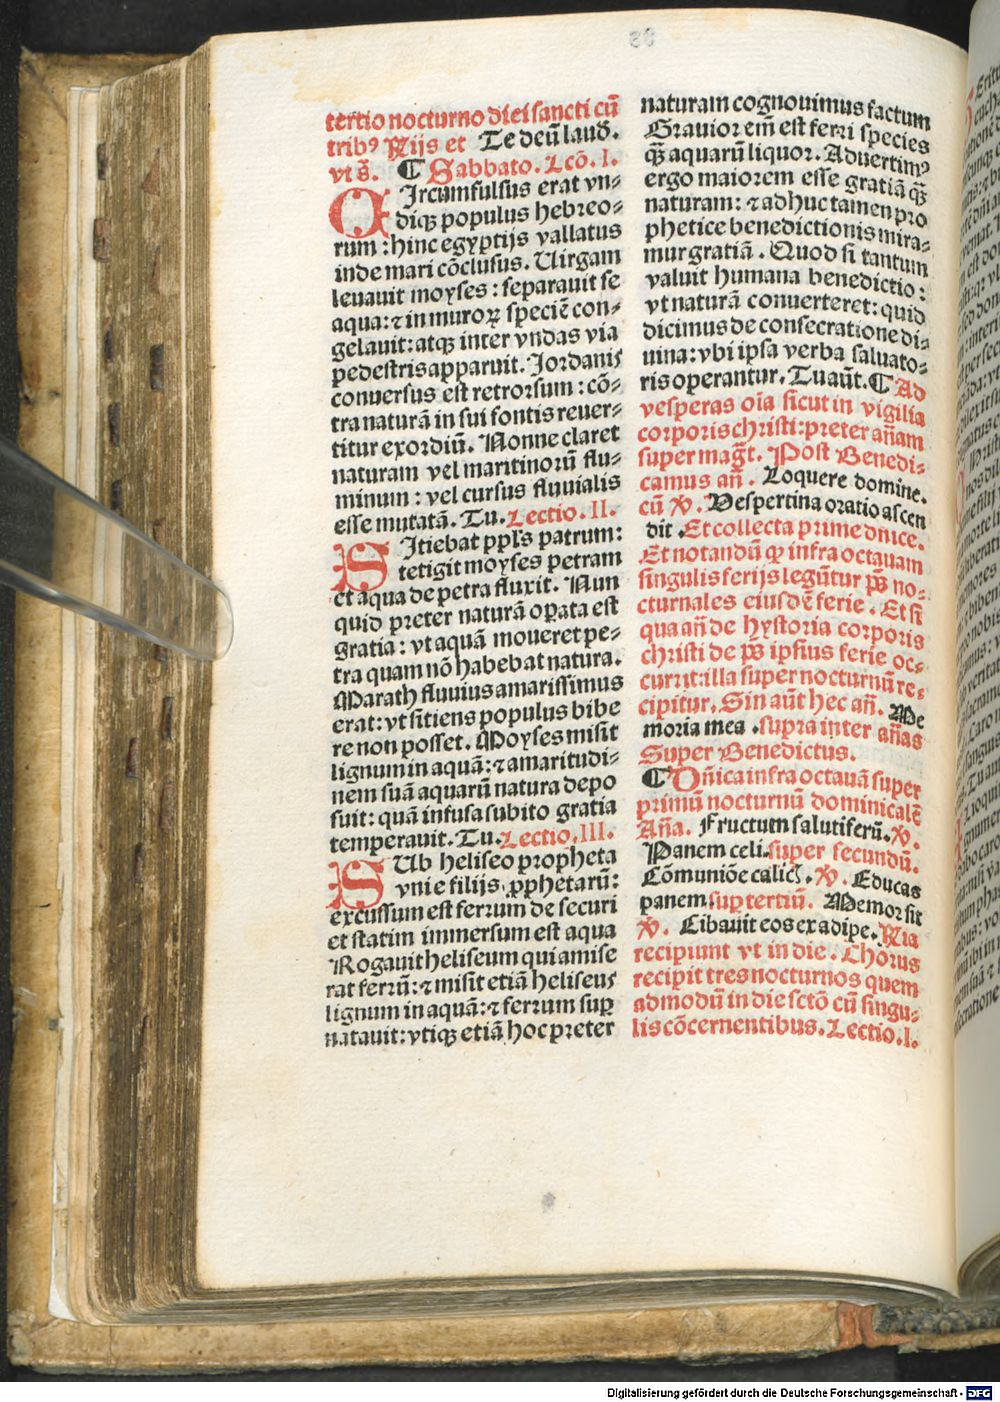 tertio nocturno diei sancti cū
tribꝰ Rijs et Te deū laud̄.
vt s̄. ¶ Sabbato. Lcō. I.
CIrcumfulsus erat vn-
diqꝫ populus hebreo-
rum: hinc egyptijs vallatus
inde mari cōclusus. Uirgam
leuauit moyses: separauit se
aqua: ⁊ in muroꝝ speciē con-
gelauit: atqꝫ inter vndas via
pedestris apparuit. Jordanis
conuersus est retrorsum: cō-
tra naturā in sui fontis reuer-
titur exordiū. Nonne claret
naturam vel maritinorū flu-
minum: vel cursus fluuialis
esse mutatā. Tu. Lectio. II.
SItiebat ppl's patrum:
tetigit moyses petram
et aqua de petra fluxit. Nun
quid preter naturā oꝑata est
gratia: vt aquā moueret pe-
tra quam nō habebat natura.
Marath fluuius amarissimus
erat: vt sitiens populus bibe
re non posset. Moyses misit
lignum in aquā: ⁊ amaritudi-
nem suā aquarū natura depo
suit: quā infusa subito gratia
temperauit. Tu. Lectio. III.
SUb heliseo propheta
vni e filijs ꝓphetarū:
excussum est ferrum de securi
et statim immersum est aqua
Rogauit heliseum qui amise
rat ferrū: ⁊ misit etiā heliseus
lignum in aquā: ⁊ ferrum suꝑ
natauit: vtiqꝫ etiā hoc preter
naturam cognouimus factum
Grauior em̄ est ferri species
qꝫ̄ aquarū liquor. Aduertimꝰ
ergo maiorem esse gratiā qꝫ̄
naturam: ⁊ adhuc tamen pro
phetice benedictionis mira-
mur gratiā. Quod si tantum
valuit humana benedictio:
vt naturā conuerteret: quid
dicimus de consecratione di-
uina: vbi ipsa verba saluato-
ris operantur. Tu aūt. ¶ Ad
vesperas oīa sicut in vigilia
corporis christi: preter añam
super mag̅t. Post Benedi-
camus añ. Loquere domine.
cū ꝟ. Vespertina oratio ascen
dit. Et collecta prime dnice.
Et notandū ꝙ infra octauam
singulis ferijs legūtur ps̄ no-
cturnales eiusdē ferie. Et si
qua añ de hystoria corporis
christi de ps̄ ipsius ferie oc-
currit: illa super nocturnū re-
cipitur. Sin aūt hec añ. Me
moria mea. supra inter añas
Super Benedictus.
¶ Dñica infra octauā super
primū nocturnū dominicalē
Aña. Fructum salutiferū. ꝟ.
Panem celi. super secundū.
Cōmuniōe calic̄. ꝟ. Educas
panem. suꝑ tertiū. Memor sit
ꝟ. Cibauit eos ex adipe. Ria
recipiunt vt in die. Chorus
recipit tres nocturnos quem
admodū in die sctō cū singu-
lis cōcernentibus. Lectio. I.
Digitalisierung gefördert durch die Deutsche Forschungsgemeinschaft - DFG